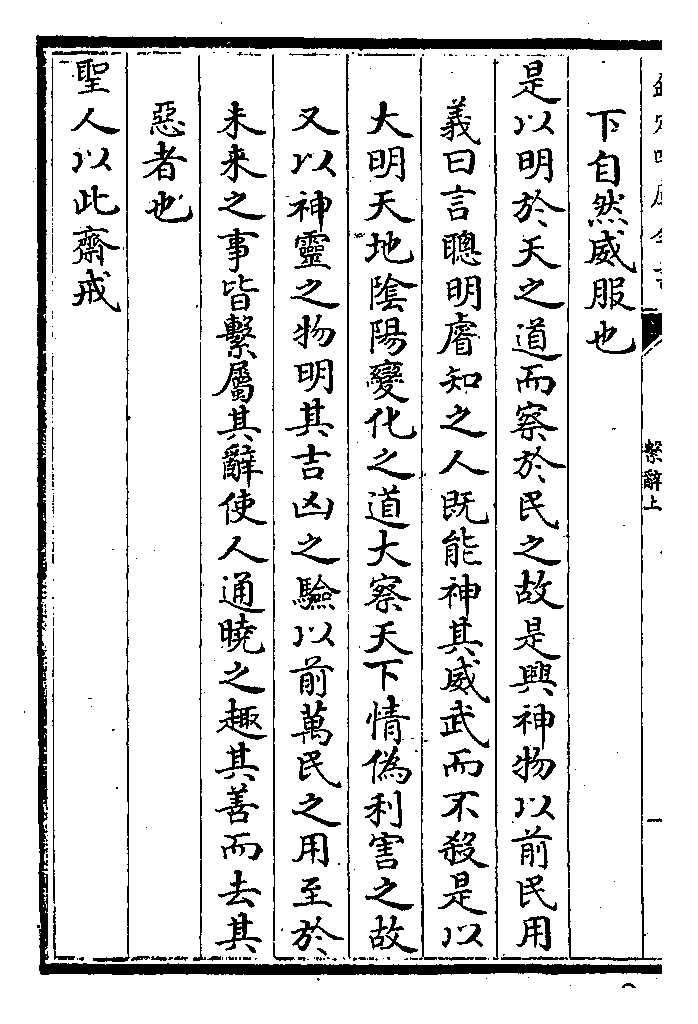 繫辭上
下自然威服也
是以明於天之道而察於民之故是興神物以前民用
義曰言聰明睿知之人既能神其威武而不殺是以
大明天地隂陽變化之道大察天下情偽利害之故
又以神靈之物明其吉凶之驗以前萬民之用至於
未来之事皆繫屬其辭使人通曉之趣其善而去其
惡者也
聖人以此齋戒